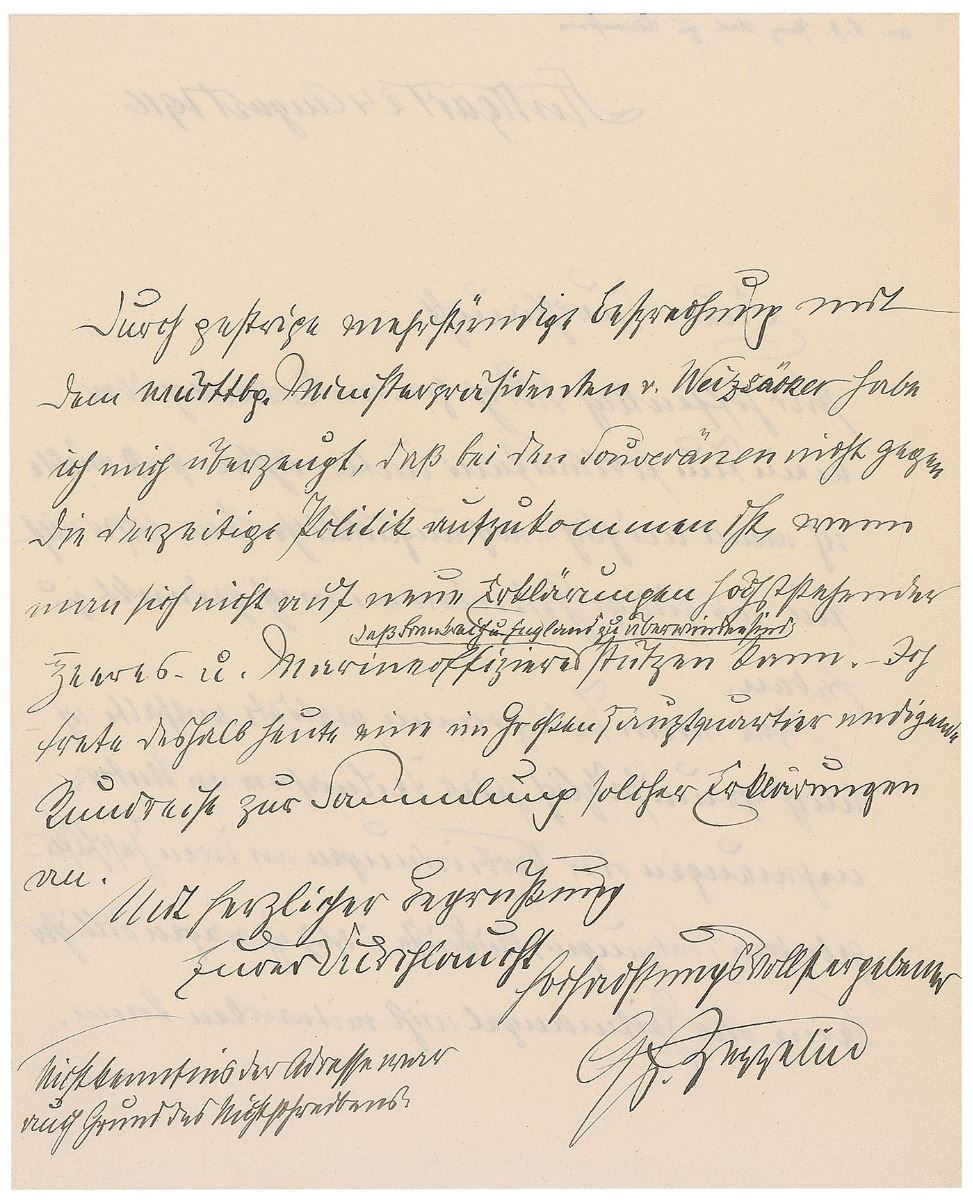 Durch gestrige mehrstündige Besprechung mit
dem württbg. Ministerpräsidenten v. Weizsäcker habe
ich mich überzeugt, daß bei den Souveränen nicht gegen
die derzeitige Politik aufzukommen ist, wenn
man sich nicht auf neue Erklärungen höchststehender
daß Frankreich u. England zu überwinden sind
Heeres- u. Marineoffiziere stützen kann. – Ich
trete deshalb heute eine im Großen Hauptquartier endigende
Rundreise zur Sammlung solcher Erklärungen
an.
Mit herzlicher Begrüßung
Eurer Durchlaucht
hochachtungsvollst ergebener
Gf. Zeppelin
Nichtkenntnis der Adresse war
auch Grund des Nichtschreibens.